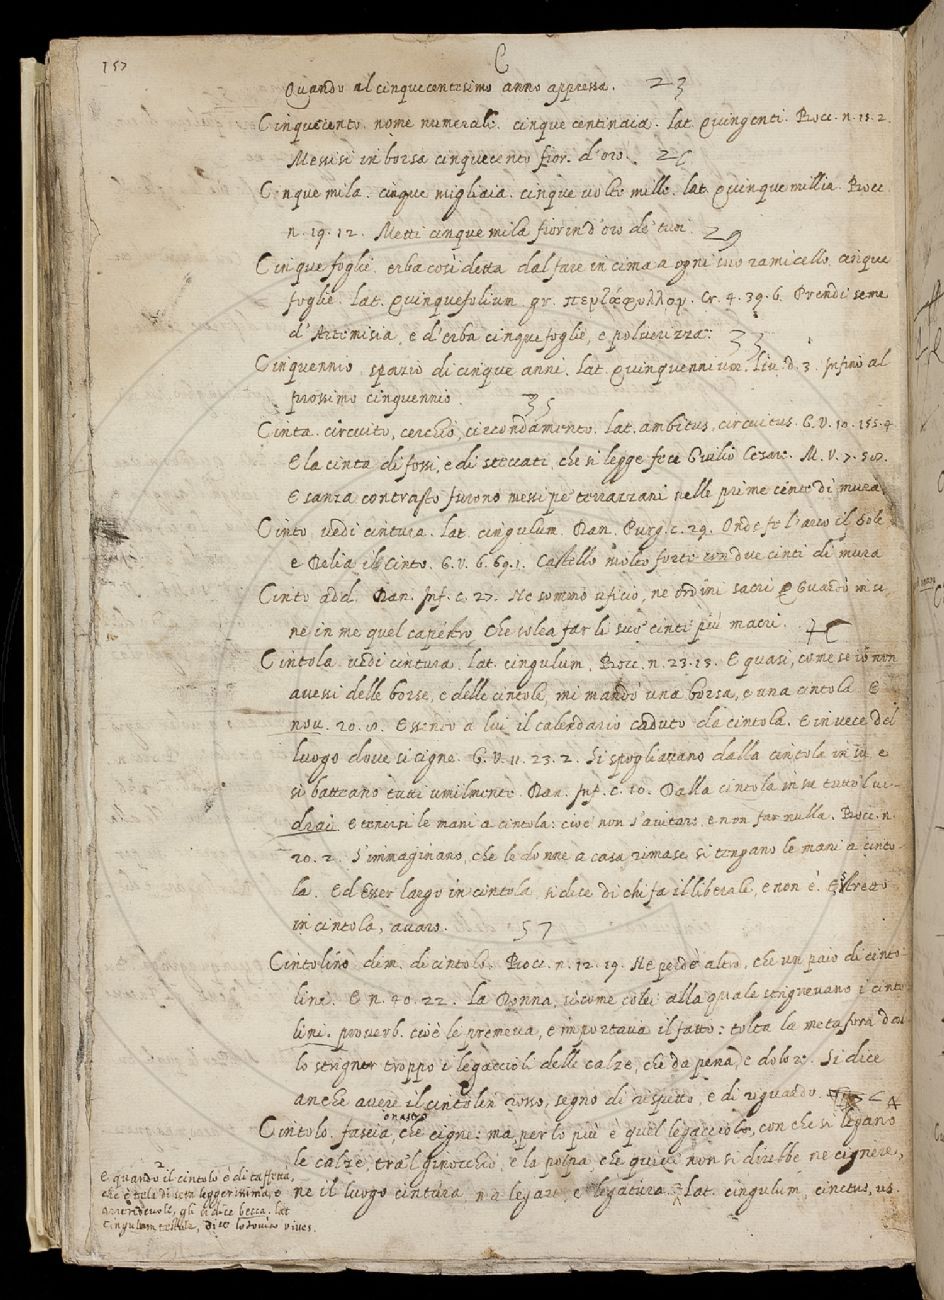 157
C
Quando al cinquecentesimo anno appressa. 23
Cinquecento. nome numerale. cinque centinaia. lat. quingenti. Bocc. n. 15. 2.
Messisi in borsa cinquecento fior. d'oro.
Cinque mila. cinque migliaia. cinque uolte mille. lat. quinque millia. Bocc.
n. 19. 12. Metti cinque mila fiorin d'oro de' tuoi. 29
Cinque foglie. erba così detta dal fare in cima a ogni suo ramicello. cinque
foglie. lat. quinquefolium gr. Cr. 4. 39. 6. Prendi seme
d'Artemisia, e d'erba cinque foglie, e poluerizza: 33
Cinquennio. spazio di cinque anni. lat. quinquennium. Liu. d. 3. Infino al
prossimo cinquennio 35
Cinta. circuito, cerchio, circondamento. lat. ambitus, circuitus. G. V. 10. 155. 4
E la cinta di fossi, e di steccati, che si legge fece Giulio Cesare. M. V. 7.
E sanza contrasto furono messi pe' terrazzani nelle prime cinte di mura.
Cinto. uedi cintura. lat. cingulum. Dan. Purg. c. 29. Onde fe l'arco il Sole
e Delia il cinto. G. V. 6. 69. 1. Castello molto forte con due cinti di mura
Cinto add. Dan. Inf. c. 27. Ne sommo uficio, ne ordini sacri Guardò in se
ne in me quel capestro Che solea far li suoi cinti più macri.
Cintola. uedi cintura. lat. cingulum. Bocc. n. 23. 15. E quasi, come se io non
auessi delle borse, e delle cintole, mi mandò una borsa, e una cintola. E
nou. 20. Essendo a lui il calendario caduto da cintola. E in uece del
luogo doue si cigne. G. V. 11. 23. 2. Si spogliauano dalla cintola in su e
si batteano tutti umilmente. Dan. Inf. c. 10. Dalla cintola in su tutto l ue-
drai. E tenersi le mani a cintola: cioè non s'aiutare, e non far nulla. Bocc. n.
20. 2. S'immaginano, che le donne a casa rimase si tengano le mani a cinto-
la. Ed Esser largo in cintola, si dice di chi fa il liberale, e non è. E stretto
in cintola, auaro. 57
Cintolino dim. di cintolo. Bocc. n. 12. 19. Ne perdè altro, che un paio di cinto-
lini. E n. 40. 22. La Donna, sì come colei alla quale strigneuano i cinto
lini. prouerb. cioè le premeua, e importaua il fatto: tolta la metafora dal
lo strigner troppo i legaccioli delle calze, che da pena, e dolore. Si dice
anche auere il cintolin rosso, segno di rispetto, e di riguardo.
o nastro
Cintolo. fascia, che cigne: ma per lo più è quel legacciolo, con che si legano
le calze, tra'l ginocchio, e la polpa, che quiui non si direbbe ne cignere,
ne il luogo cintura ma legare e legatura. Lat. cingulum, cinctus, us.
E quando il cintolo è di taffetta,
che è tela di seta leggerissima, e
arrendeuole, gli si dice becca. lat.
Cingulum textile, disse Lodouico viues.